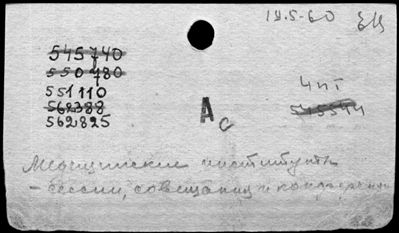 12.5-60 ЕИ
545740
550780
551110
562388
562825
4пт
545544
Ас
Медицинские институты
- сессии, совещания и конференции